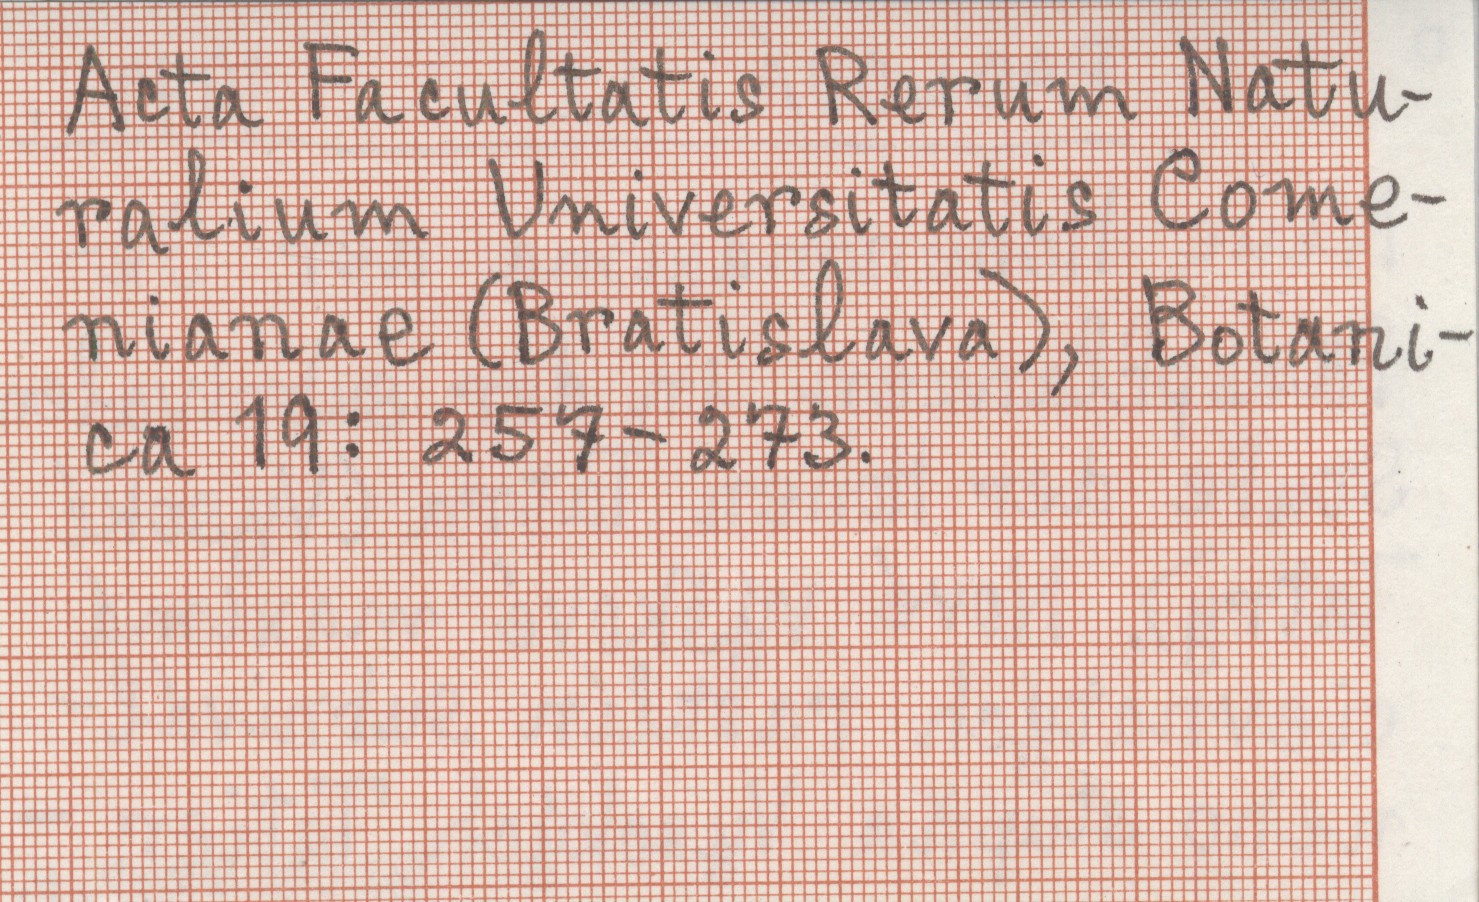 Acta Facultatis Rerum Natu-
ralium Universitatis Come-
nianae (Bratislava), Botani-
ca 19: 257-273.